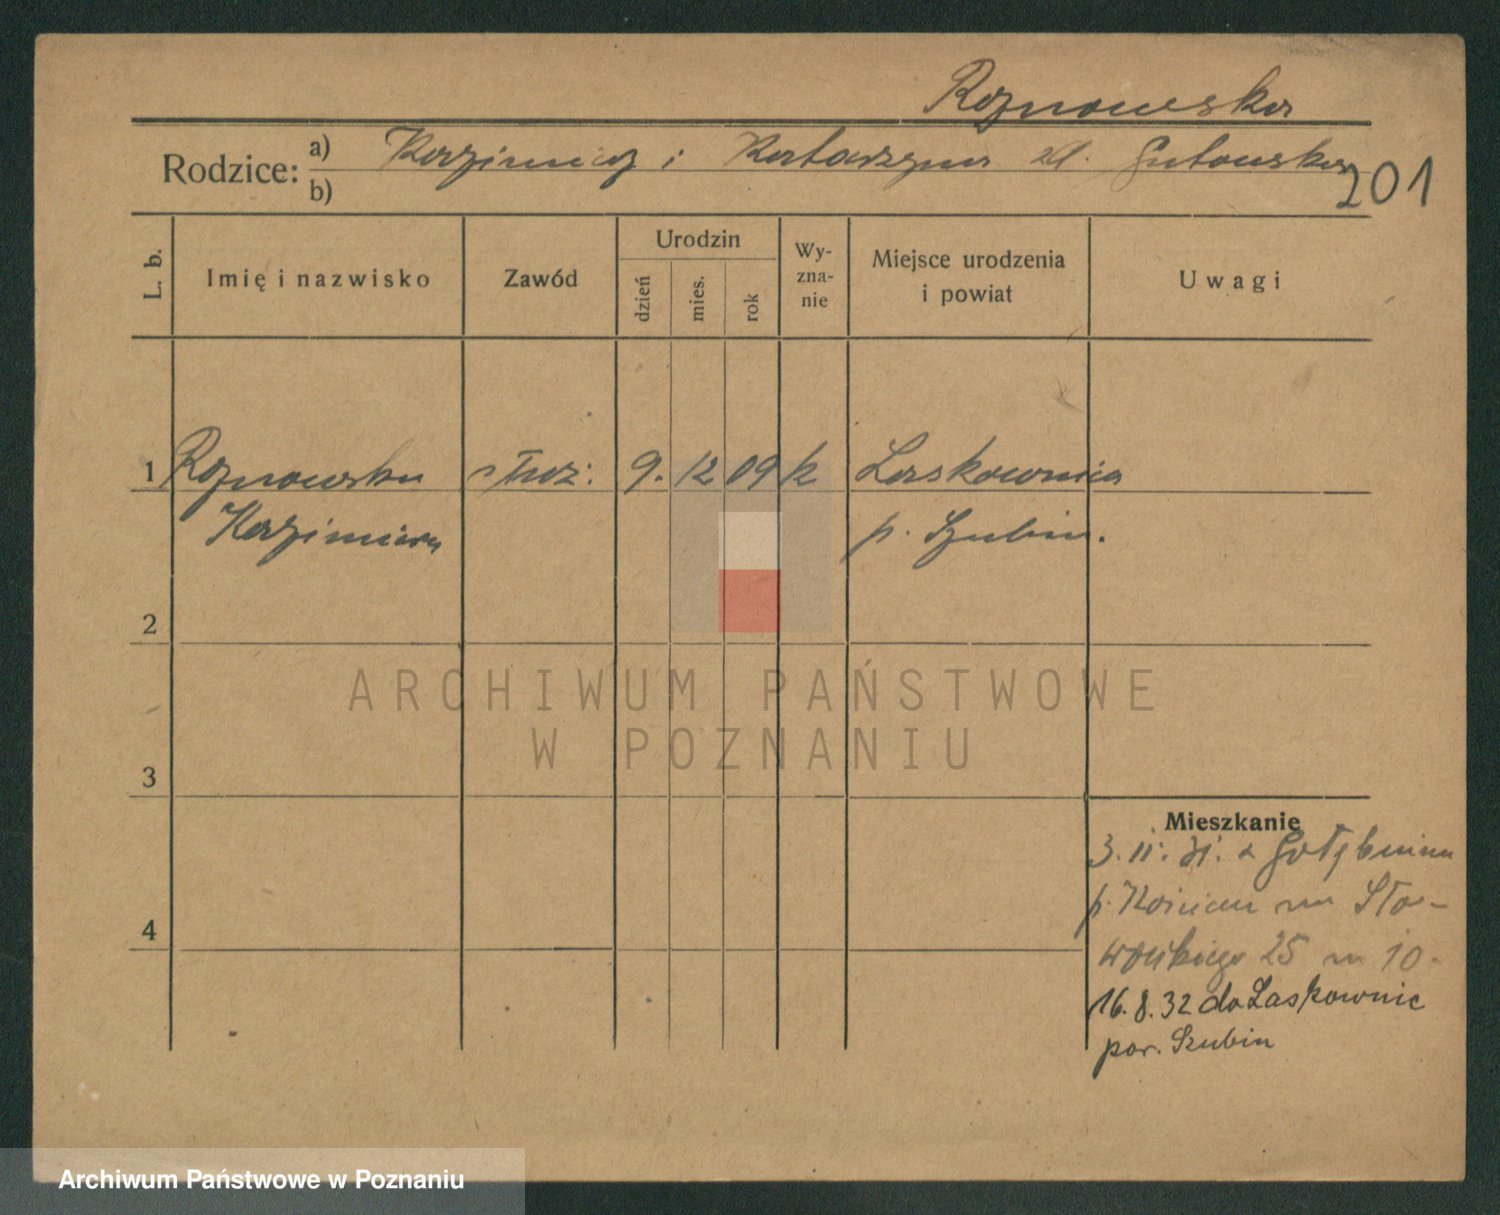 Roznowska
Rodzice: a) Kazimierz i Katarzyna zd. Gutowska
b)
201
L. b.
Imię i nazwisko
Zawód
Urodzin
dzień
mies.
rok
Wy-
zna-
nie
Miejsce urodzenia
i powiat
Uwagi
1 Roznowska służ: 9. 12 09 k Laskownica
Kazimiera p. Szubin.
2
3
4
Mieszkanie
3. II. 31. z
p. na Sło-
wackiego 25 m 10.
16.8.32 do Laskownic
pow. Szubin
ARCHIWUM PAŃSTWOWE
W POZNANIU
Archiwum Państwowe w Poznaniu